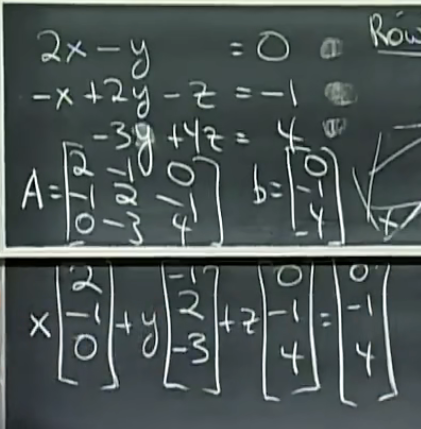 2x - y = 0
Row
-x + 2y - z = -1
-3y + 4z = 4
A = [2 -1 0
-1 2 -1
0 -3 4]
b = [0
-1
4]
x
x [2 -1 0] + y [-1 2 -3] + z [0 -1 4] = [0 -1 4]